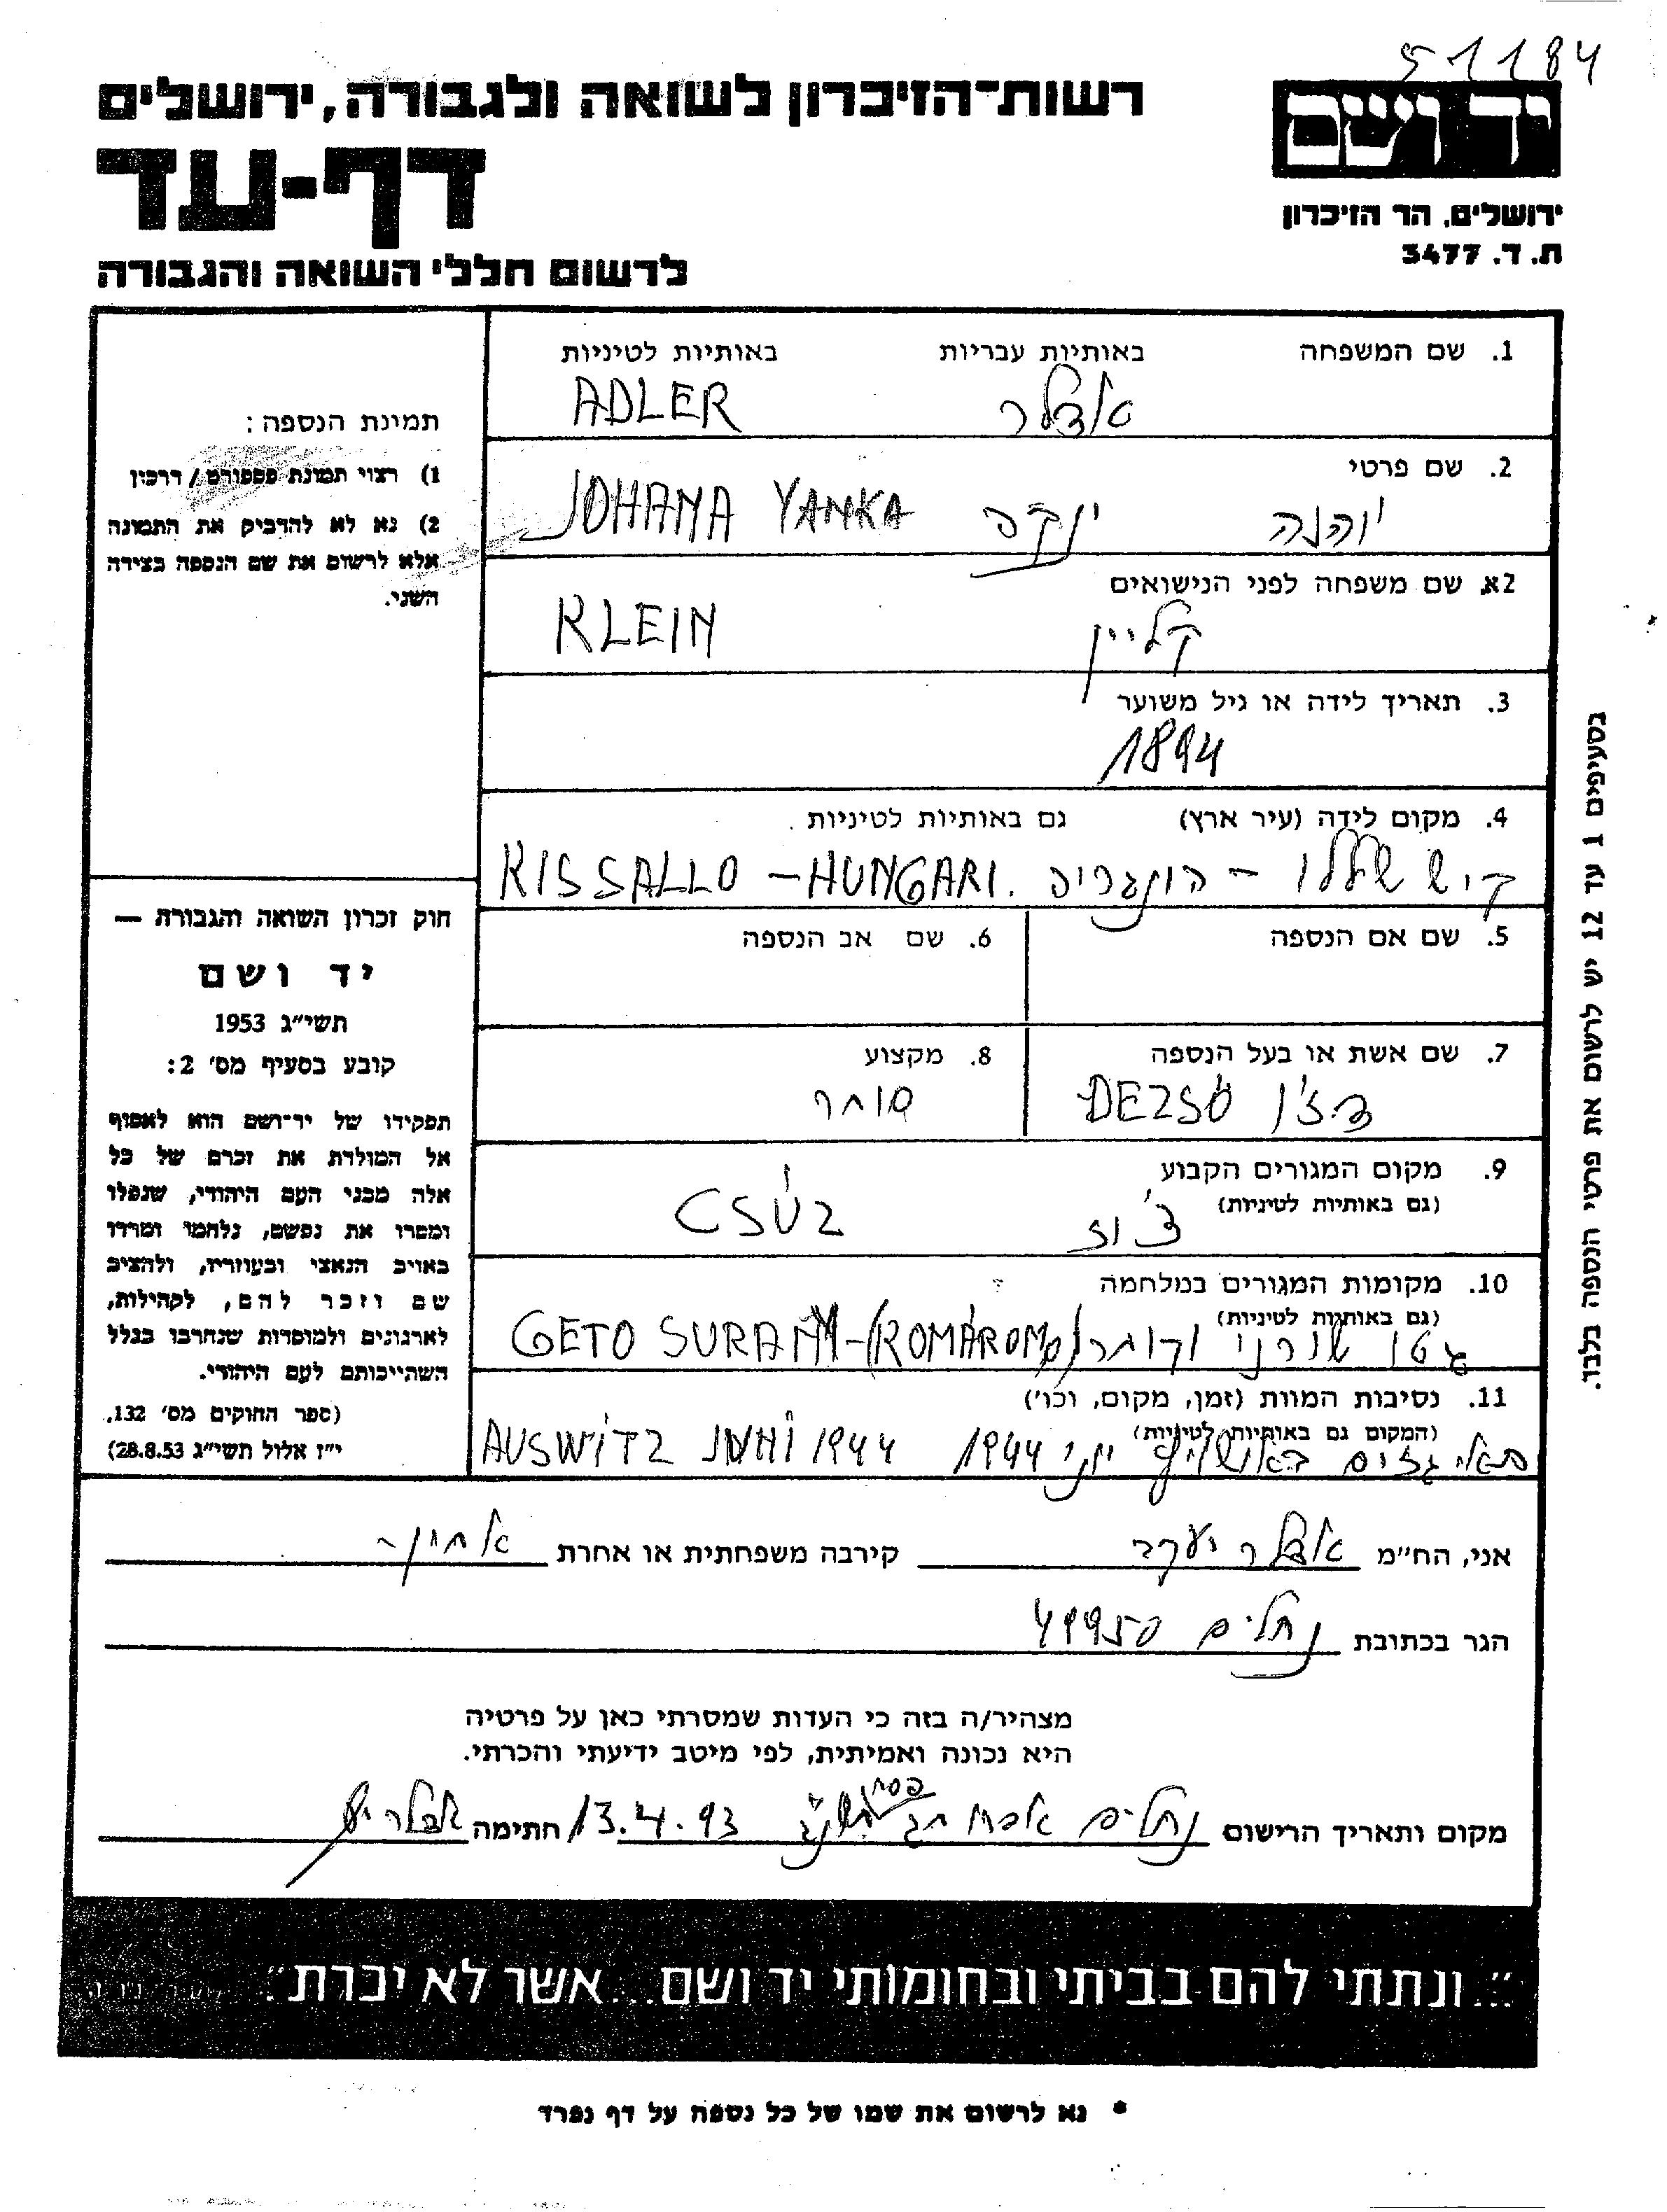 51184
רשות־הזיכרון לשואה ולגבורה, ירושלים
יד ושם
דף-עד
ירושלים, הר הזיכרון
ת. ד. 3477
לרשום חללי השואה והגבורה
1. שם המשפחה באותיות עבריות באותיות לטיניות
אדלר ADLER
2. שם פרטי
יוהנה ינקה JOHANA YANKA
2א. שם משפחה לפני הנישואים
קליין KLEIN
3. תאריך לידה או גיל משוער
1894
4. מקום לידה (עיר ארץ) גם באותיות לטיניות
קיש שללו - הונגריה KISSALLO - HUNGARI.
5. שם אם הנספה
6. שם אב הנספה
7. שם אשת או בעל הנספה
DEZSÖ
8. מקצוע
סוחר
9. מקום המגורים הקבוע
(גם באותיות לטיניות)
צ'וז CSÚZ
10. מקומות המגורים במלחמה
(גם באותיות לטיניות)
גטו שורני GETO SURANY-(KOMÁROM)
11. נסיבות המוות (זמן, מקום, וכו')
(המקום גם באותיות לטיניות)
בתאי גזים באושויץ יוני 1944 AUSWITZ JUNI 1944
תמונת הנספה:
1) רצוי תמונת פספורט / דרכון
2) נא לא להדביק את התמונה
אלא לרשום את שם הנספה בצידה
השני.
חוק זכרון השואה והגבורה —
יד ושם
תשי״ג 1953
קובע בסעיף מס׳ 2:
תפקידו של יד־ושם הוא לאסוף
אל המולדת את זכרם של כל
אלה מבני העם היהודי, שנפלו
ומסרו את נפשם, נלחמו ומרדו
באויב הנאצי ובעוזריו, ולהציב
שם וזכר להם, לקהילות,
לארגונים ולמוסדות שנחרבו בגלל
השתייכותם לעם היהודי.
(ספר החוקים מס׳ 132,
י״ז אלול תשי״ג 28.8.53)
בסעיפים 1 עד 12 יש לרשום את פרטי הנספה בלבד.
אני, הח״מ אדלר יעקב קירבה משפחתית או אחרת אחיין
הגר בכתובת נחלים 49950
מצהיר/ה בזה כי העדות שמסרתי כאן על פרטיה
היא נכונה ואמיתית, לפי מיטב ידיעתי והכרתי.
מקום ותאריך הרישום נחלים חג פסח תשנ״ג 13.4.93 חתימה אדלר
״...ונתתי להם בביתי ובחומותי יד ושם... אשר לא יכרת״
* נא לרשום את שמו של כל נספה על דף נפרד